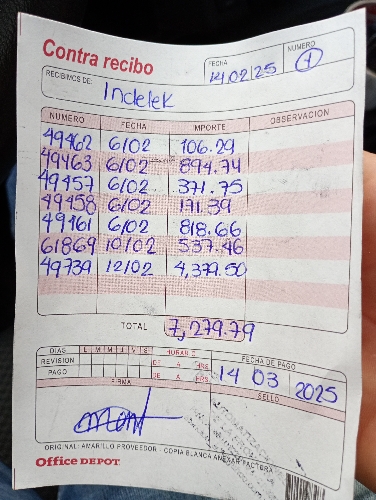 Contra recibo
FECHA
14/02/25
NUMERO
1
RECIBIMOS DE:
Indelek
NUMERO FECHA IMPORTE OBSERVACION
49462 6/02 106.29
49463 6/02 894.74
49457 6/02 371.75
49458 6/02 171.39
49461 6/02 818.66
61869 10/02 537.46
49739 12/02 4,379.50
TOTAL 7,279.79
DIAS L M M J V S HORARIO FECHA DE PAGO
REVISION DE A HRS
PAGO DE A HRS
14 03 2025
FIRMA SELLO
ORIGINAL: AMARILLO PROVEEDOR - COPIA BLANCA ANEXAR FACTURA
Office DEPOT